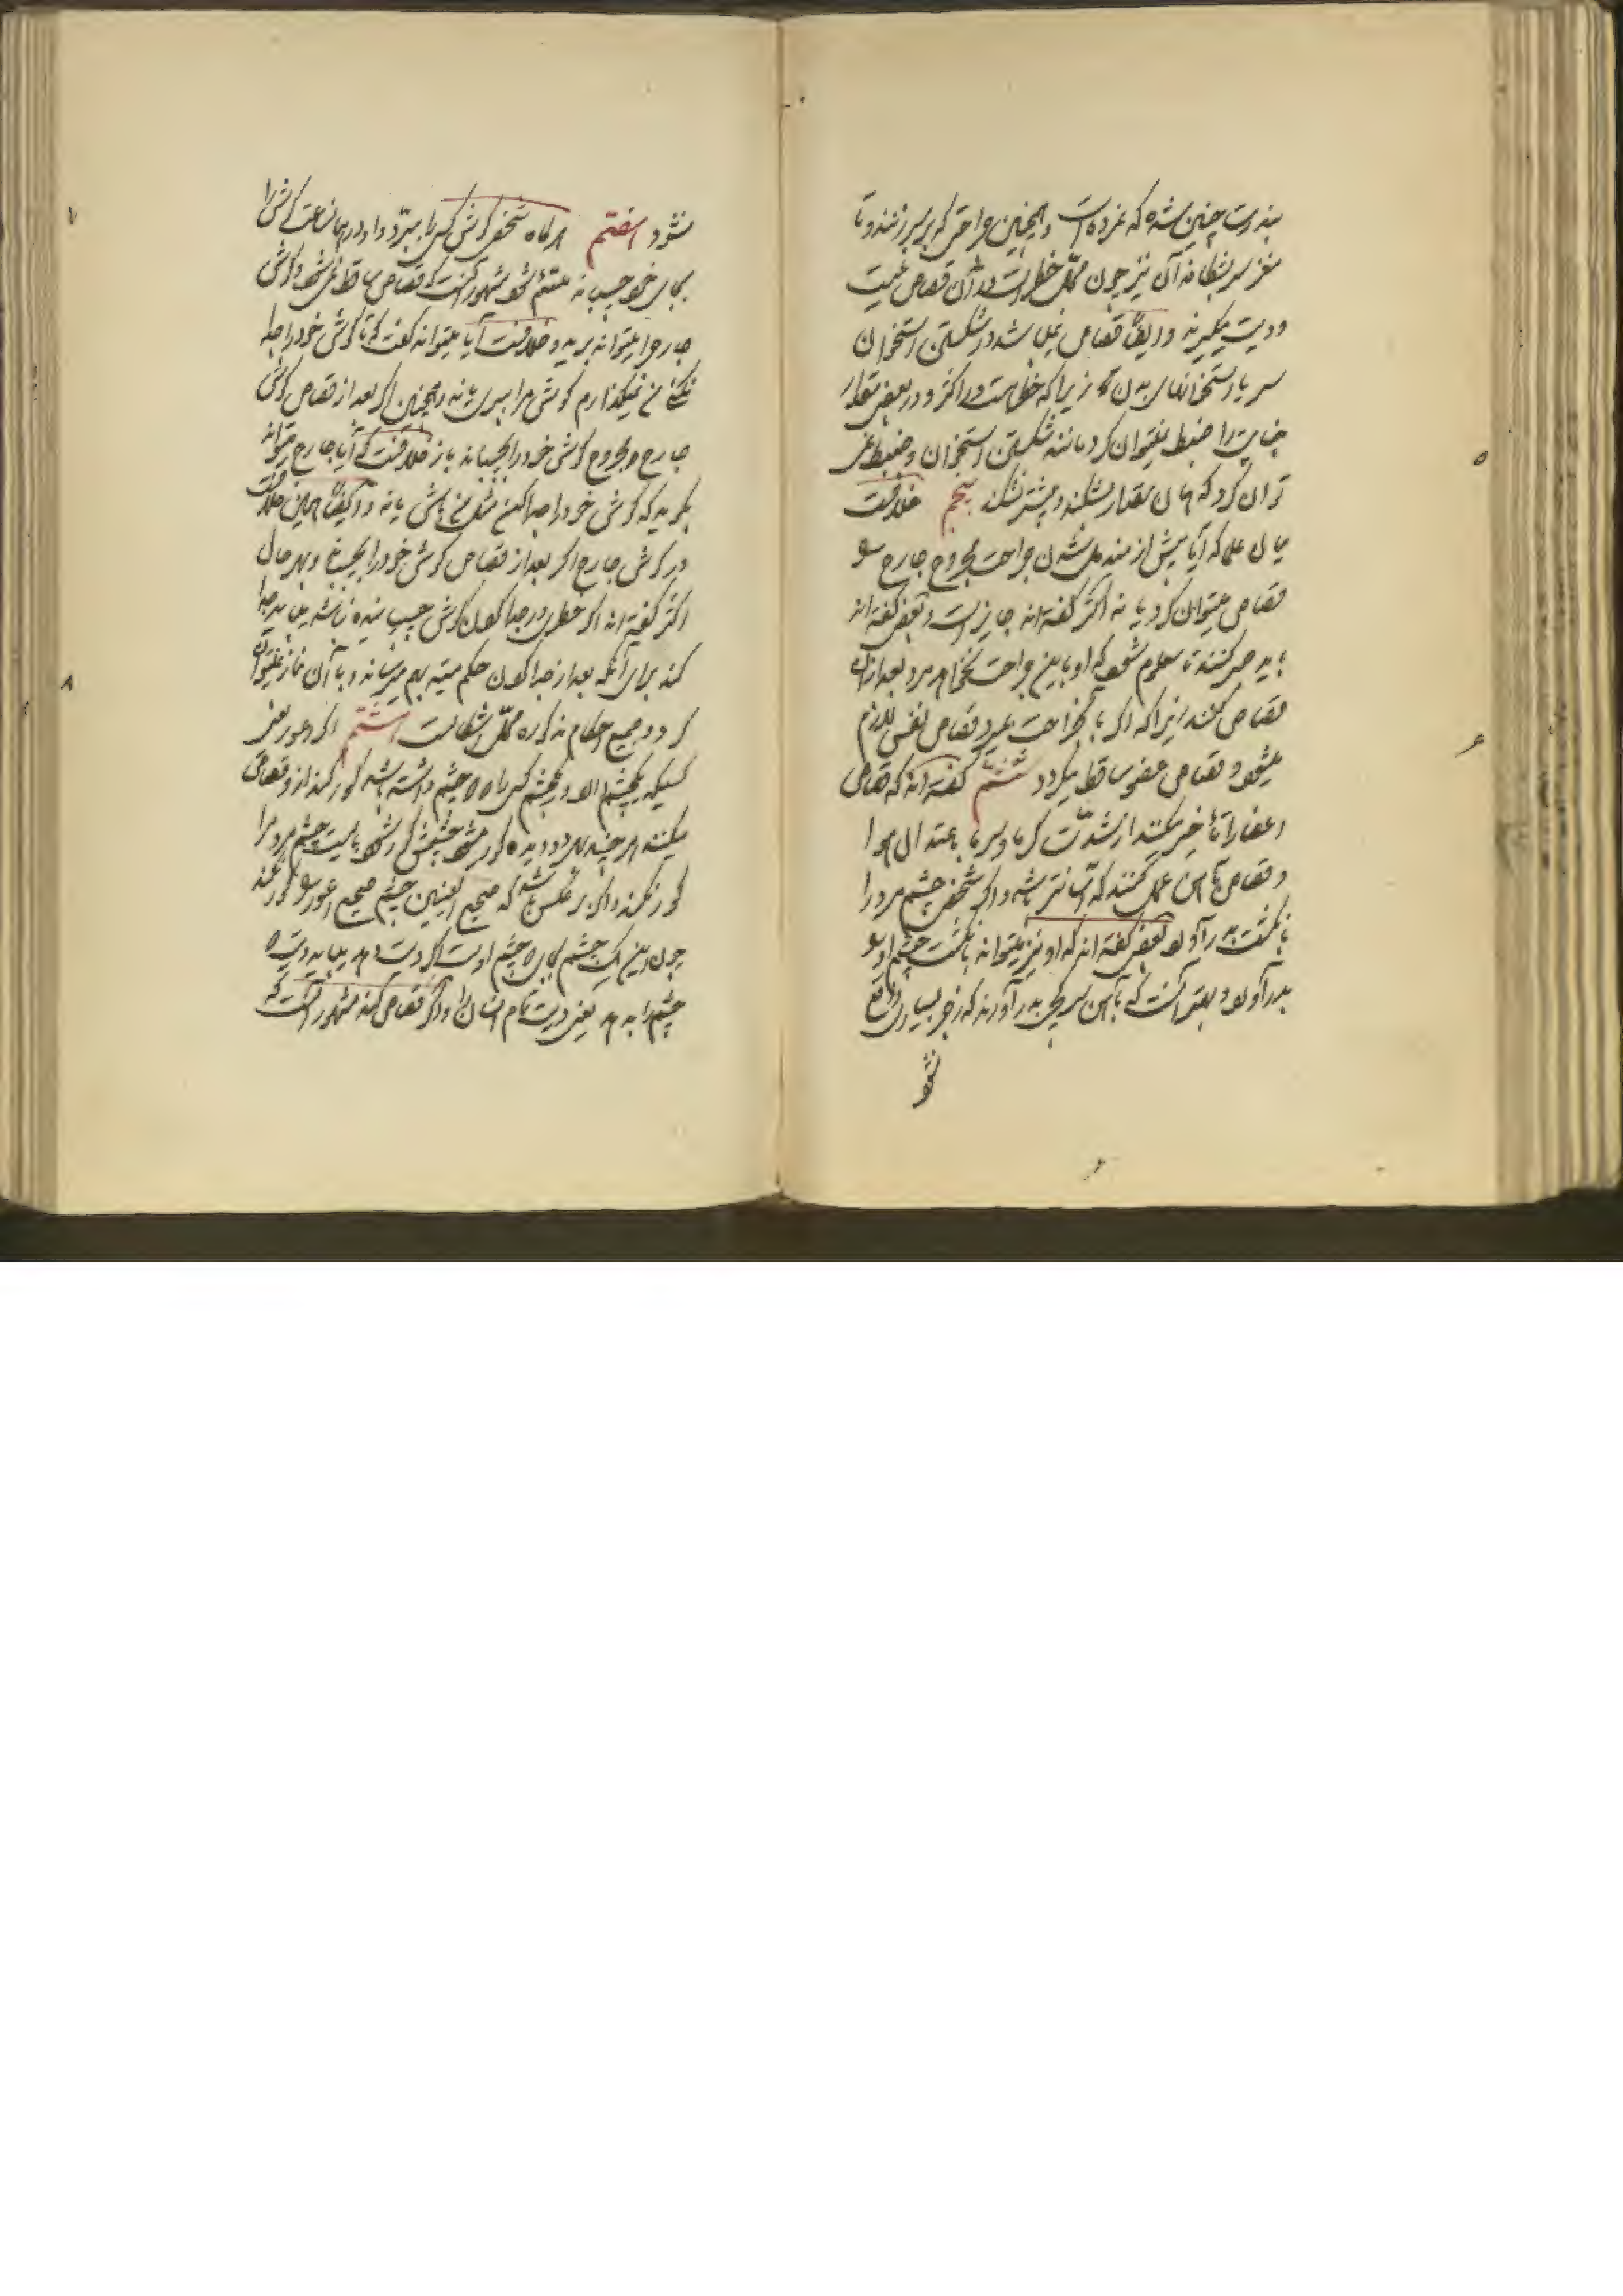 بندرت چنین شده که نمرده است و همچنین جراحتی که بر سر زنند و تا
مغز سر بشکافد آن نیز چون محل خطر است در آن قصاص نیست
و دیت میگیرند و ایضا قصاص نمیباشد در شکستن استخوان
سر یا استخوانهای بدن زیرا که خطر است در اکثر و در بعضی مقدار
جنایت را ضبط نمیتوان کرد مانند شکستن استخوان و ضبط نمی
توان کرد که همان مقدار بشکند و بیشتر نشکند پنجم خلافست
میان علما که آیا پیش از مندمل شدن جراحت مجروح جارح را
قصاص میتوان کرد یا نه اکثر گفته‌اند جایز است و بعضی گفته‌اند
باید صبر کنند تا معلوم شود که او باین جراحت نخواهد مرد بعد از آن
قصاص کنند زیرا که اگر باین جراحت بمیرد قصاص نفس لازم
میشود و قصاص عضو ساقط میگردد ششم گفته‌اند که قصاص
اعضا را تأخیر میکنند از شدت گرما و سرما باعتدال هوا
و قصاص بآهن عمل کنند که آسانتر باشد و اگر شخصی چشم مرد را
بانگشت بدر آورد بعضی گفته‌اند که او نیز میتواند بانگشت چشم او را
بدر آورد و بهتر آنست که بآهن سر کجی بدر آورند که زجر بسیاری واقع
نشو
نشود هفتم هرگاه شخصی گوش کسی را ببرد و او در همان ساعت گوش را
بجای خود چسباند ملتئم شود مشهور آنست که قصاص ساقط نمیشود و گوش
جارح را میتواند برید و خلافست آیا میتواند گفت که تا گوش خود را جدا
نکنی من نمیگذارم گوش مرا ببری یا نه و همچنین اگر بعد از قصاص گوش
جارح مجروح گوش خود را بچسباند باز خلافست که آیا جارح میتواند
بگوید که گوش خود را جدا کن مثل من باش یا نه و ایضا همین خلافست
در گوش جارح اگر بعد از قصاص گوش خود را بچسباند و بهر حال
اکثر گفته‌اند اگر خطری در جدا کردن گوش چسبیده نباشد میباید جدا
کند برای آنکه بعد از جدا کردن حکم میته بهم میرساند و با آن نماز نمیتوان
کرد و جمیع احکام مذکوره محل اشکالست هشتم اگر اعور یعنی
کسیکه یکچشم دارد و یکچشم کسی را که دو چشم داشته باشد کور کند از او قصاص
میکنند هر چند هر دو دیده کور میشود چشمش کور شود بایست چشم مردم را
کور نکند و اگر برعکس باشد که صحیح العینین چشم صحیح اعور را کور کند
چون این یک چشم بجای دو چشم اوست اگر دیت دهد میباید دیت دو
چشم را بدهد یعنی دیت تمام انسان را و اگر قصاص کند مشهور آنست که
۵
۶
۷
۸